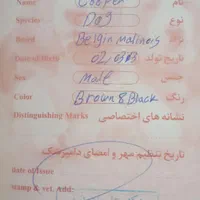 Name Cooper نام
Species Dog نوع
Breed Belgin Malinois نژاد
Date of Birth 02,03,03 تاریخ تولد
Sex Male جنس
Color Brown & Black رنگ
Distinguishing Marks نشانه های اختصاصی
تاریخ تنظیم مهر و امضای دامپزشک
Date of Issue
Stamp & vet. Athi: